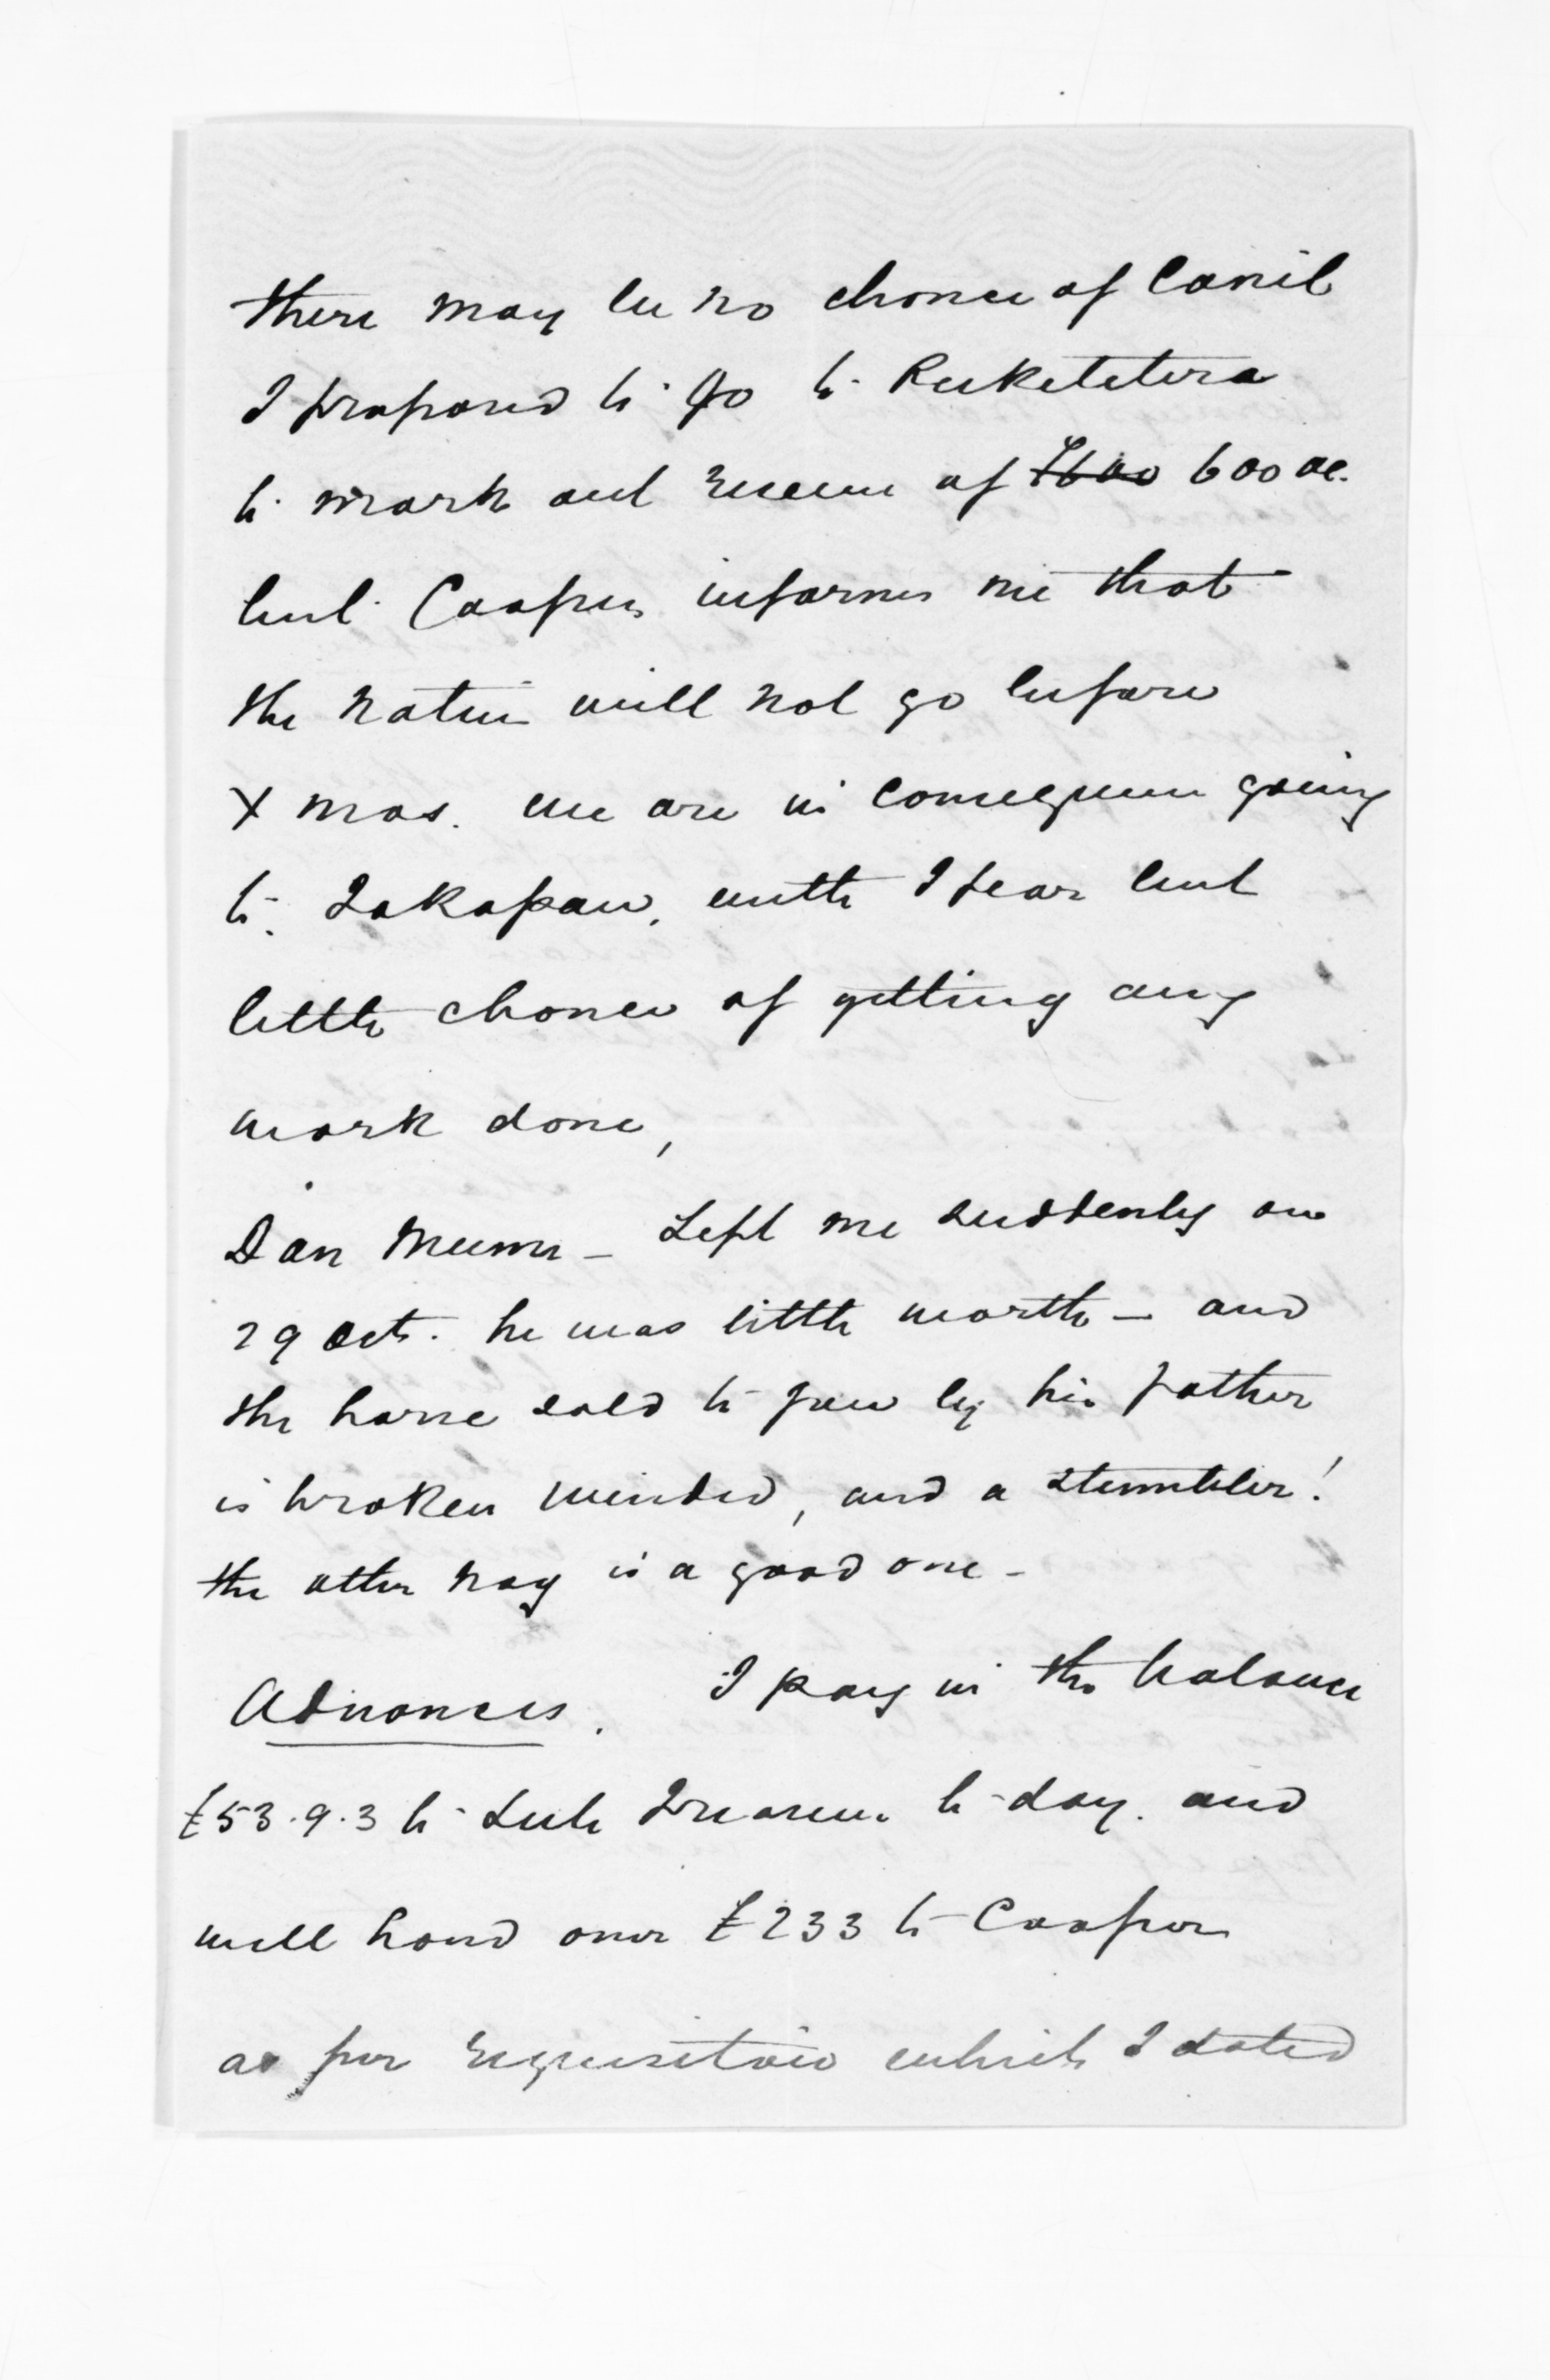 there may be no chance of Cavil
I proposed to go to Puketitiri
to mark out Reserve of £600 600 ac.
but Cooper informs me that
the natives will not go before
Xmas. we are in consequence going
to Takapau, with I fear but
little chance of getting any
work done,
Dan Munn – Left me suddenly on
29 Oct. he was little worth – and
the horse sold to you by his father
is broken winded, and a stumbler!
the other nag is a good one –
Advances. I pay in the balance
£53.9.3 to Sub Treasury to-day. and
will hand over £233 to Cooper
as per requisition which I dated